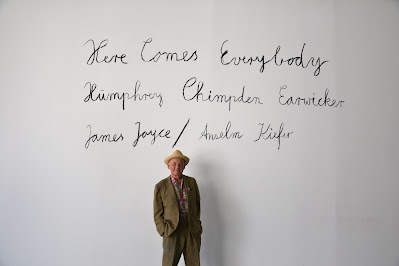 Here Comes Everybody
Humphrey Chimpden Earwicker
James Joyce / Anselm Kiefer